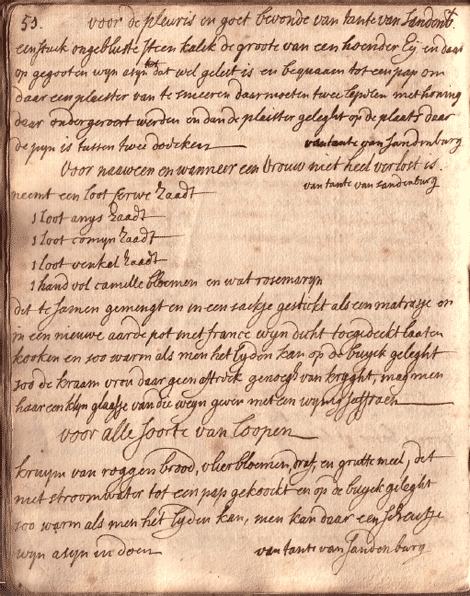 53. voor de pleuris en goet bevonde van tante van Sandenb:
een stuk ongebluste steen kalck de groote van een hoender Eij en daar
op gegooten wyn asyn tot dat wel gelest is en bequaam tot een pap om
daar een plaester van te smeeren daar moeten twee lepelen met honing
daar ondergeroert werden en dan de plaister geleght op de plaets daar
de pyn is tussen twee doecken
van tante van Sandenburg
Voor naaween en wanneer een Vrouw niet heel verlost is.
van tante van Sandenburg
neemt een loot Zaadt
1 loot anys Zaadt
1 loot comyn Zaadt
1 loot venkel Zaadt
1 hand vol camille bloemen en wat rosemaryn
dit te samen gemengt en in een sackje gestickt als een matrasje en
in een nieuwe aarde pot met france wyn dicht toegedeckt laaten
kooken en soo warm als men het lyden kan op de buyck geleght
soo de kraam vrou daar geen genoegh van kryght, mag men
haar een klyn glaasje van die weyn geven met een wynig saffraen
voor alle soorte van loopen
kruym van roggen brood, vlier bloemen, en grutte meel, dit
met stroom water tot een pap gekoockt en op de buyck geleght
soo warm als men het lyden kan, men kan daar een scheutje
wyn asyn in doen
van tante van Sandenburg